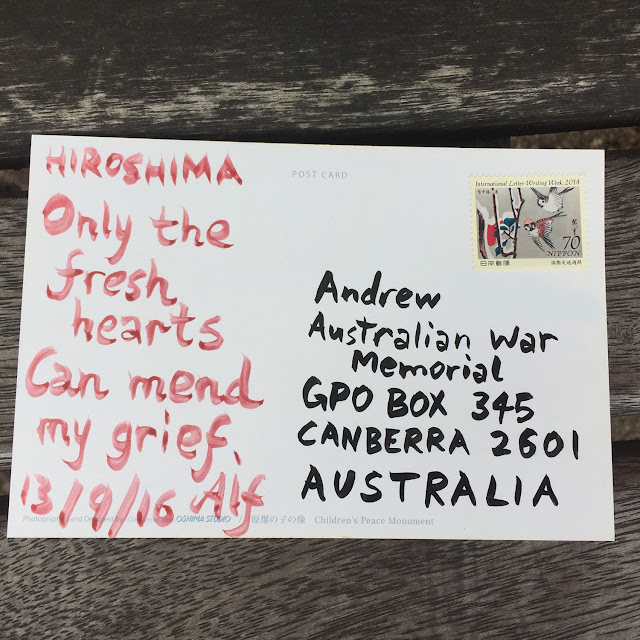 HIROSHIMA
Only the
fresh
hearts
Can mend
my grief.
13/9/16 Alf
POST CARD
International Letter-Writing Week, 2014
70
NIPPON
日本郵便
国際文通週間
Andrew
Australian War
Memorial
GPO BOX 345
CANBERRA 2601
AUSTRALIA
Photographed and Designed by
OSHIMA STUDIO
原爆の子の像 Children's Peace Monument